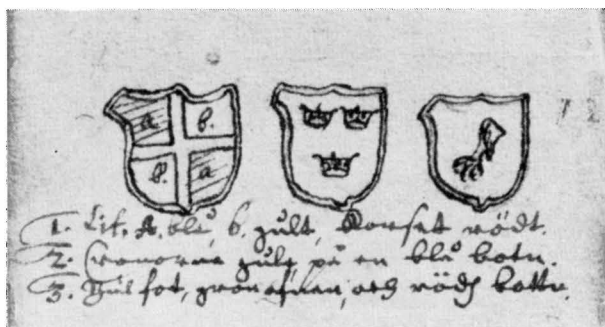 a b.
b. a
1. Lit. A. blå, b. gult, Korset rödt.
2. Cronorne gule på en blå botn.
3. Gul fot, och rödh bottn.